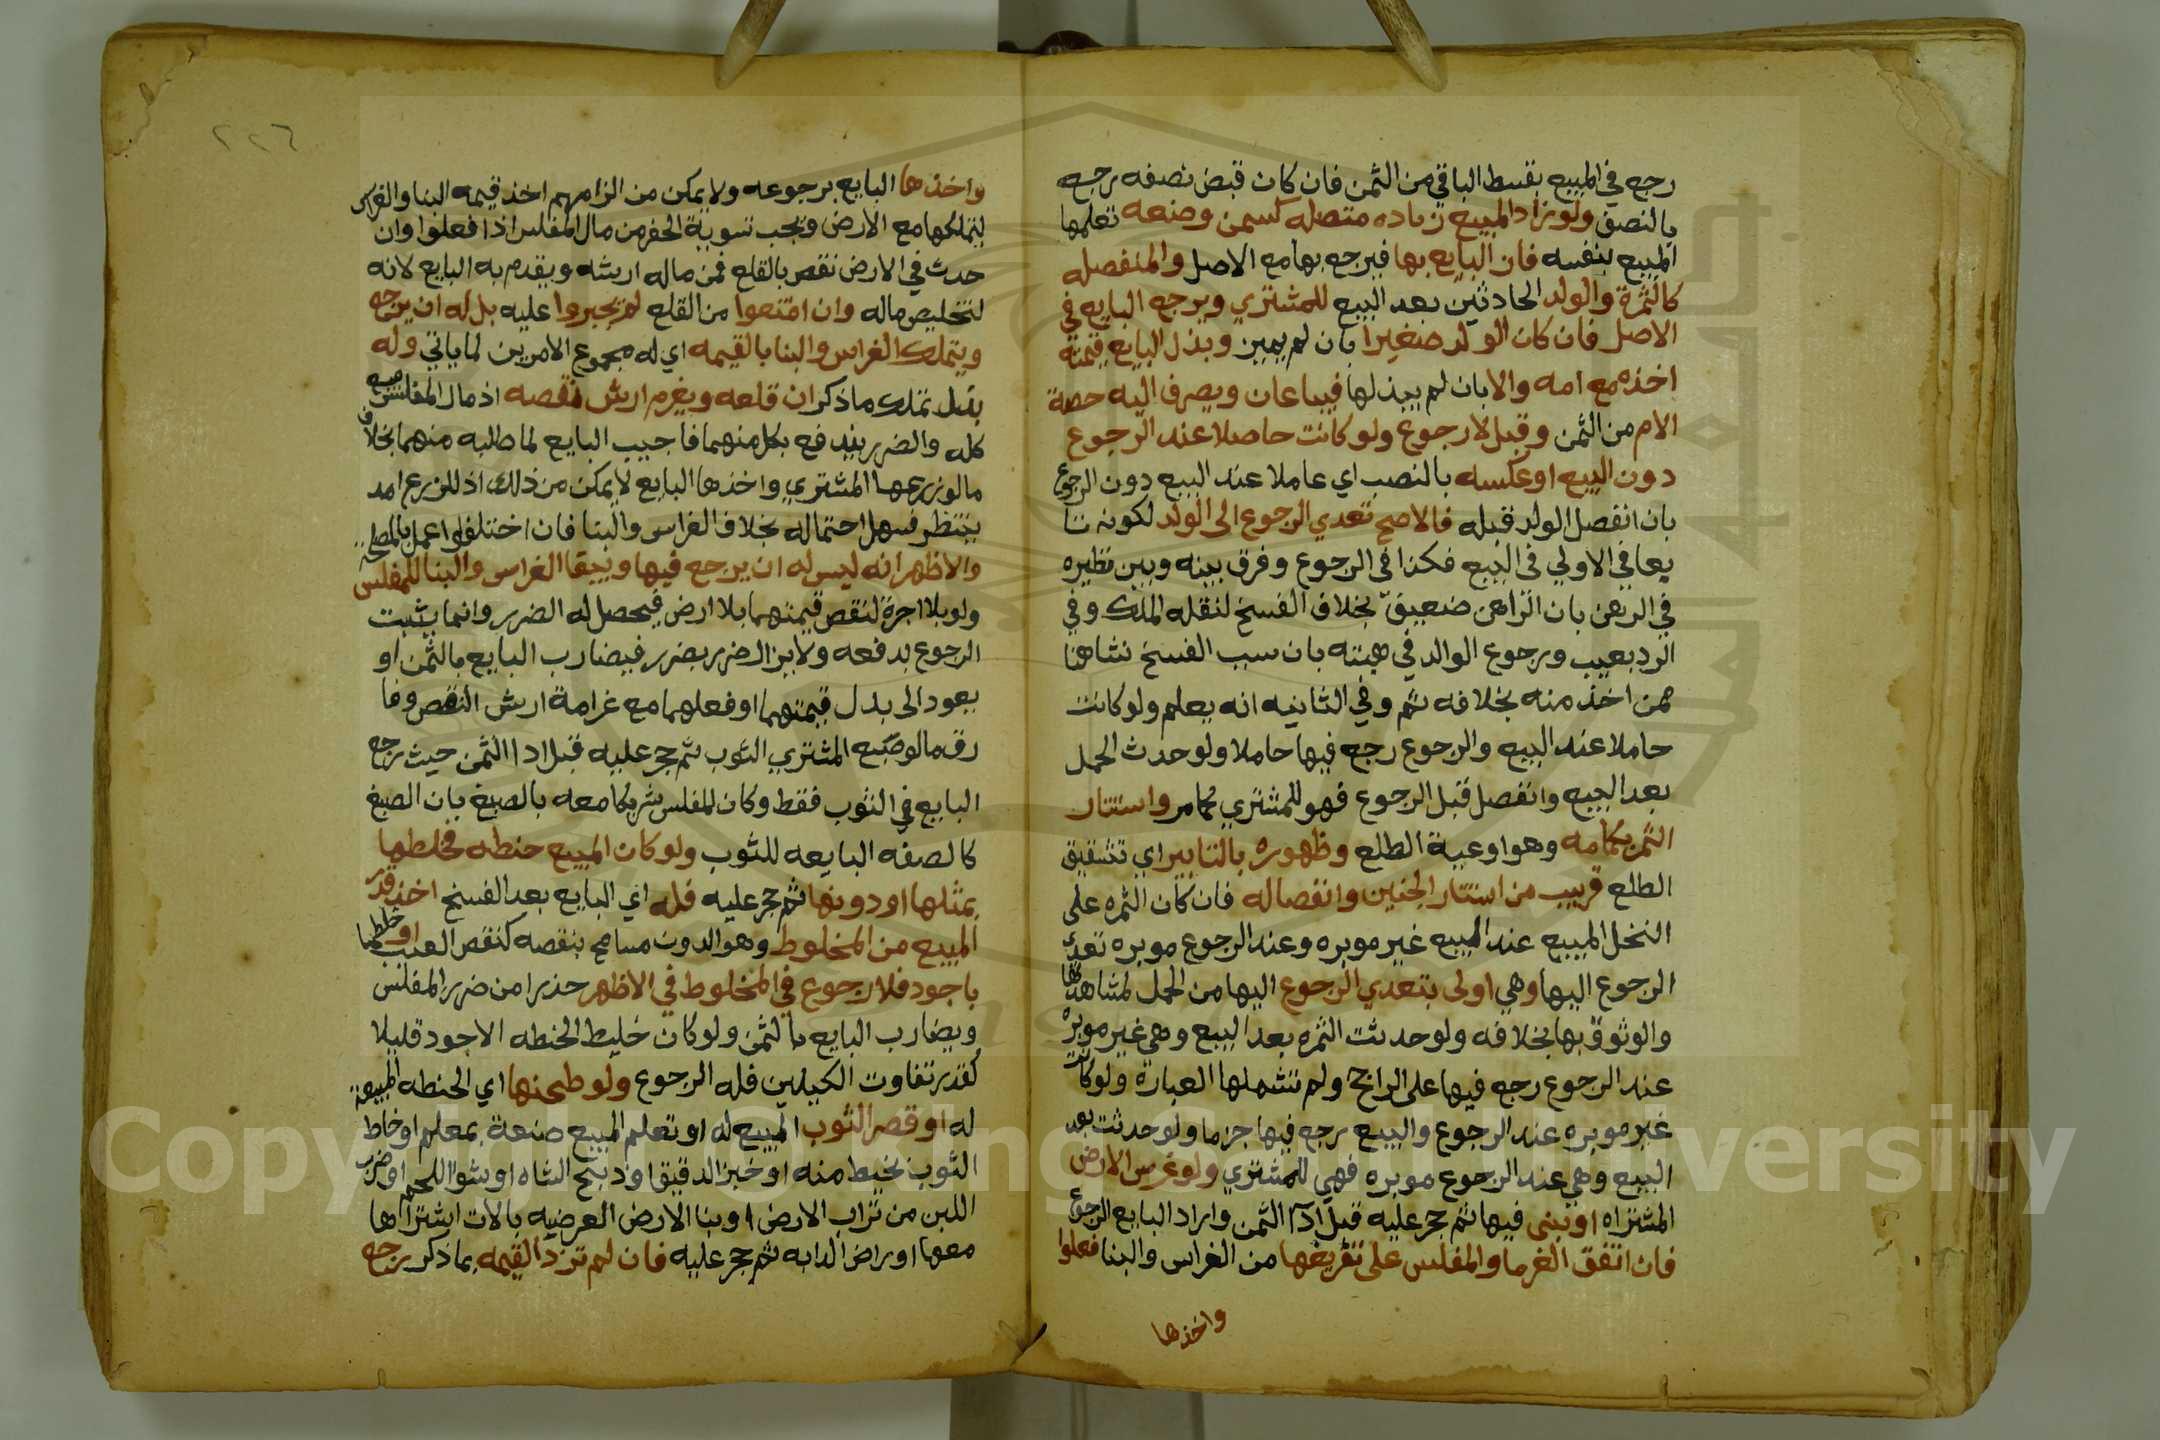 رجع في المبيع بقسط الباقي من الثمن فان كان قبض نصفه رجع
بالنصف ولو زاد المبيع زياده متصله كسمن وصنعه تعلمها
المبيع بنفسه فان البايع بها فيرجع بها مع الاصل والمنفصله
كالثمرة والولد الحادثين بعد البيع للمشتري ويرجع البايع في
الاصل فان كان الولد صغيرا بان لم يميز وبذل البايع قيمته
اخذه مع امه والا بان لم يبذلها فيباعان ويصرف اليه حصة
الام من الثمن وقبل لا رجوع ولو كانت حاملا عند الرجوع
دون البيع او عكسه بالنصب اي حاملا عند البيع دون الرجوع
بان انفصل الولد قبله فالاصح تعدي الرجوع الى الولد لكونه تا
بعا في الاولي في البيع فكذا في الرجوع وفرق بينه وبين نظيره
في الرهن بان الراهن ضعيف بخلاف الفسخ لنقله الملك وفي
الرد بعيب ورجوع الوالد في هبته بان سبب الفسخ نشا هنا
ممن اخذ منه بخلافه ثم وفي الثانيه انه يعلم ولو كانت
حاملا عند البيع والرجوع رجع فيها حاملا ولو حدث الحمل
بعد البيع وانفصل قبل الرجوع فهو للمشتري كما مر واستتار
الثمر بكمامه وهو اوعية الطلع وظهوره بالتابير اي تشقيق
الطلع قريب من استتار الجنين وانفصاله فان كان الثمره على
النخل المبيع عند المبيع غير موبره وعند الرجوع موبره تعدي
الرجوع اليها وهي اولى بتعدي الرجوع اليها من الحمل لمشاهدتها
والوثوق بها بخلافه ولو حدثت الثمره بعد البيع وهي غير موبره
عند الرجوع رجع فيها على الراجح ولم تشملها العبارة ولو كانت
غير موبره عند الرجوع والبيع رجع فيها جزما ولو حدثت بعد
البيع وهي عند الرجوع موبره فهي للمشتري ولو غرس الارض
المشتراه او بنى فيها ثم حجر عليه قبل ادا الثمن واراد البايع الرجوع
فان اتفق الغرما والمفلس على تفريغها من الغراس والبنا فعلوا
واخذها
٢٢٦
واخذها البايع برجوعه ولا يمكن من الزامهم اخذ قيمه البنا والغراس
ليتملكها مع الارض وتجب تسوية الحفر من مال المفلس اذا فعلوا وان
حدث في الارض نقص بالقلع فمن ماله ارشه ويقدم به البايع لانه
لتخليص ماله وان امتنعوا من القلع لم يجبروا عليه بل له ان يرجع
ويتملك الغراس والبنا بالقيمه اي له مجموع الامرين لما ياتي وله
بدل تملك ما ذكر ان قلعه ويغرم ارش نقصه اذ مال المفلس مبيع
كله والضرر يندفع بكل منهما فاجيب البايع لما طلبه منهما بخلاف
ما لو زرعها المشتري واخذها البايع لا يمكن من ذلك اذ للزرع امد
ينتظر فسهل احتماله بخلاف الغراس والبنا فان اختلفوا عمل بالمصلحة
والاظهر انه ليس له ان يرجع فيها ويبقا الغراس والبنا للمفلس
ولو بلا اجرة لنقص قيمتهما بلا ارض فيحصل له الضرر وانما يثبت
الرجوع لدفعه ولا يزال ضرر بضرر فيضارب البايع بالثمن او
يعود الى بدل قيمتهما او فعلهما مع غرامة ارش النقص وفا
رق ما لو صبغ المشتري الثوب ثم حجر عليه قبل ادا الثمن حيث رجع
البايع في الثوب فقط وكان المفلس شريكا معه بالصبغ بان الصبغ
كالصفه البايعه للثوب ولو كان المبيع حنطه فخلطها
بمثلها او دونها ثم حجر عليه فله اي البايع بعد الفسخ اخذ قدر
المبيع من المخلوط وهو الدون مسامح بنقصه كنقص العيب او خلطها
باجود فلا رجوع في المخلوط في الاظهر حذرا من ضرر المفلس
ويضارب البايع بالثمن ولو كان خليط الحنطه الاجود قليلا
كقدر تفاوت الكيلين فله الرجوع ولو طحنها اي الحنطه المبيعة
له او قصر الثوب المبيع له او تعلم المبيع صنعة بمعلم او خاط
الثوب بخيط منه او خبز الدقيق او ذبح الشاه او شوا اللحم او ضرب
اللبن من تراب الارض او بنا الارض العرضيه بالات اشتراها
معها او راض الدابه ثم حجر عليه فان لم تزد القيمه بما ذكر رجع
Copyright © King Saud University